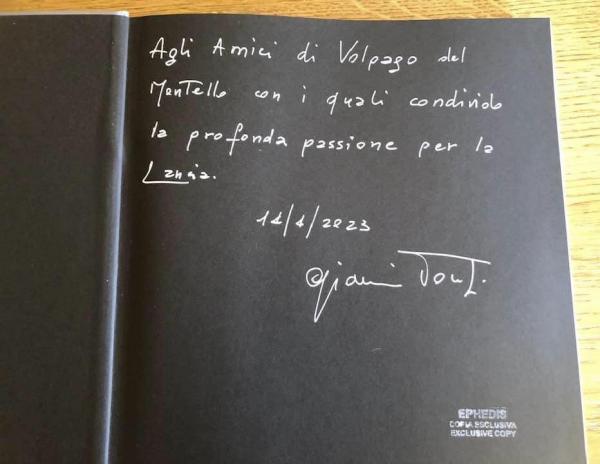 Agli Amici di Volpago del
Montello con i quali condivido
la profonda passione per la
Lancia.
14/4/2023
EPHEDIS
COPIA ESCLUSIVA
EXCLUSIVE COPY